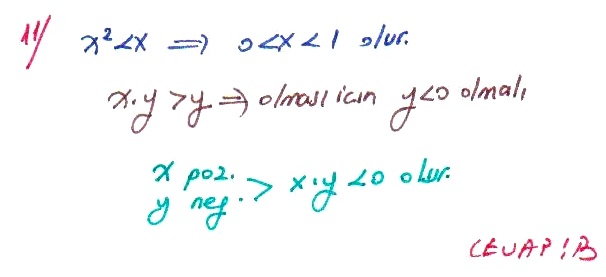 11/ x² < x ⇒ 0 < x < 1 olur.
x.y > y ⇒ olması için y<0 olmalı
x poz.
y neg. > x.y < 0 olur.
CEVAP: B